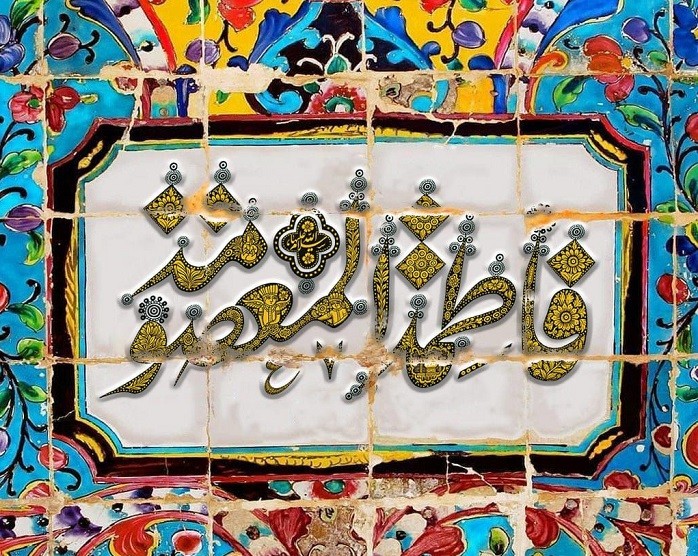 فاطمة المعصومة